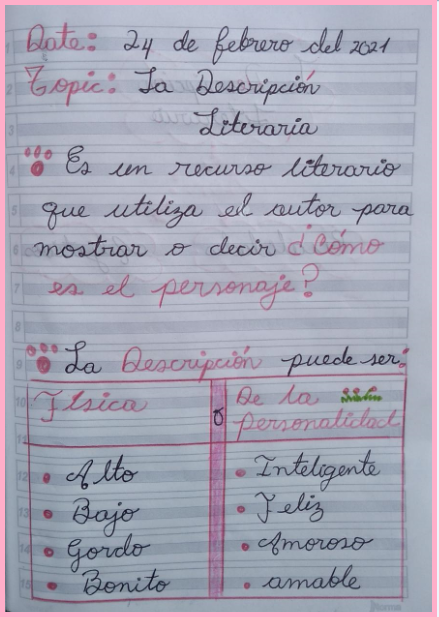 Date: 24 de febrero del 2021
Topic: La Descripción
Literaria
Es un recurso literario
que utiliza el autor para
mostrar o decir ¿Cómo
es el personaje?
La Descripción puede ser:
Física o De la
personalidad
• Alto • Inteligente
• Bajo • Feliz
• Gordo • Amoroso
• Bonito • amable